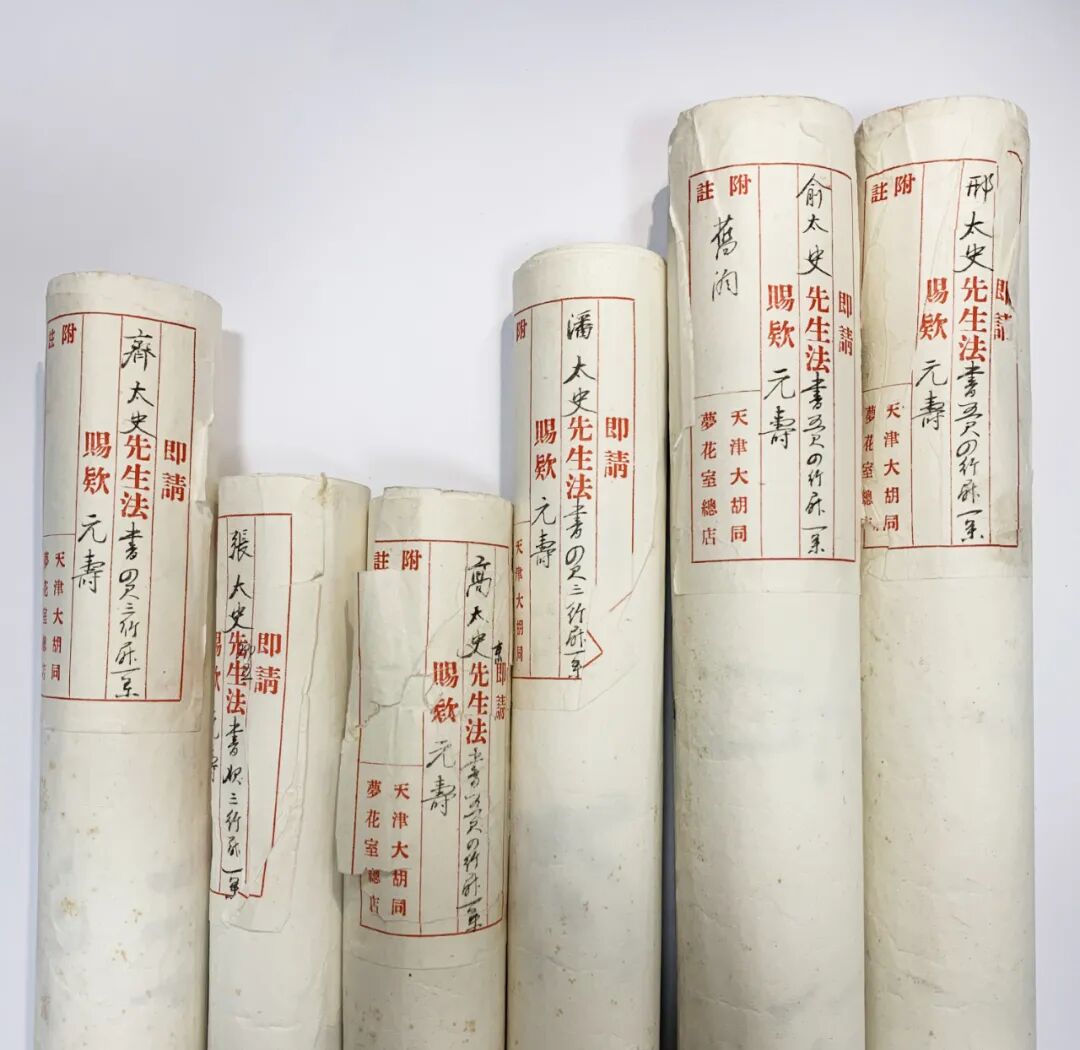 即請
齊太史先生法書四尺三行屏一条
賜欵 元壽
附註
天津大胡同
夢花室總店
即請
張太史先生法書三行屏一条
賜欵
附註
即請
高太史先生法書五尺四行屏一条
賜欵 元壽
天津大胡同
夢花室總店
即請
潘太史先生法書四尺三行屏一条
賜欵 元壽
附
天津大胡同
即請
俞太史先生法書五尺四行屏一条
賜欵 元壽
附註
舊
天津大胡同
夢花室總店
即請
邢太史先生法書五尺四行屏一条
賜欵 元壽
附註
天津大胡同
夢花室總店